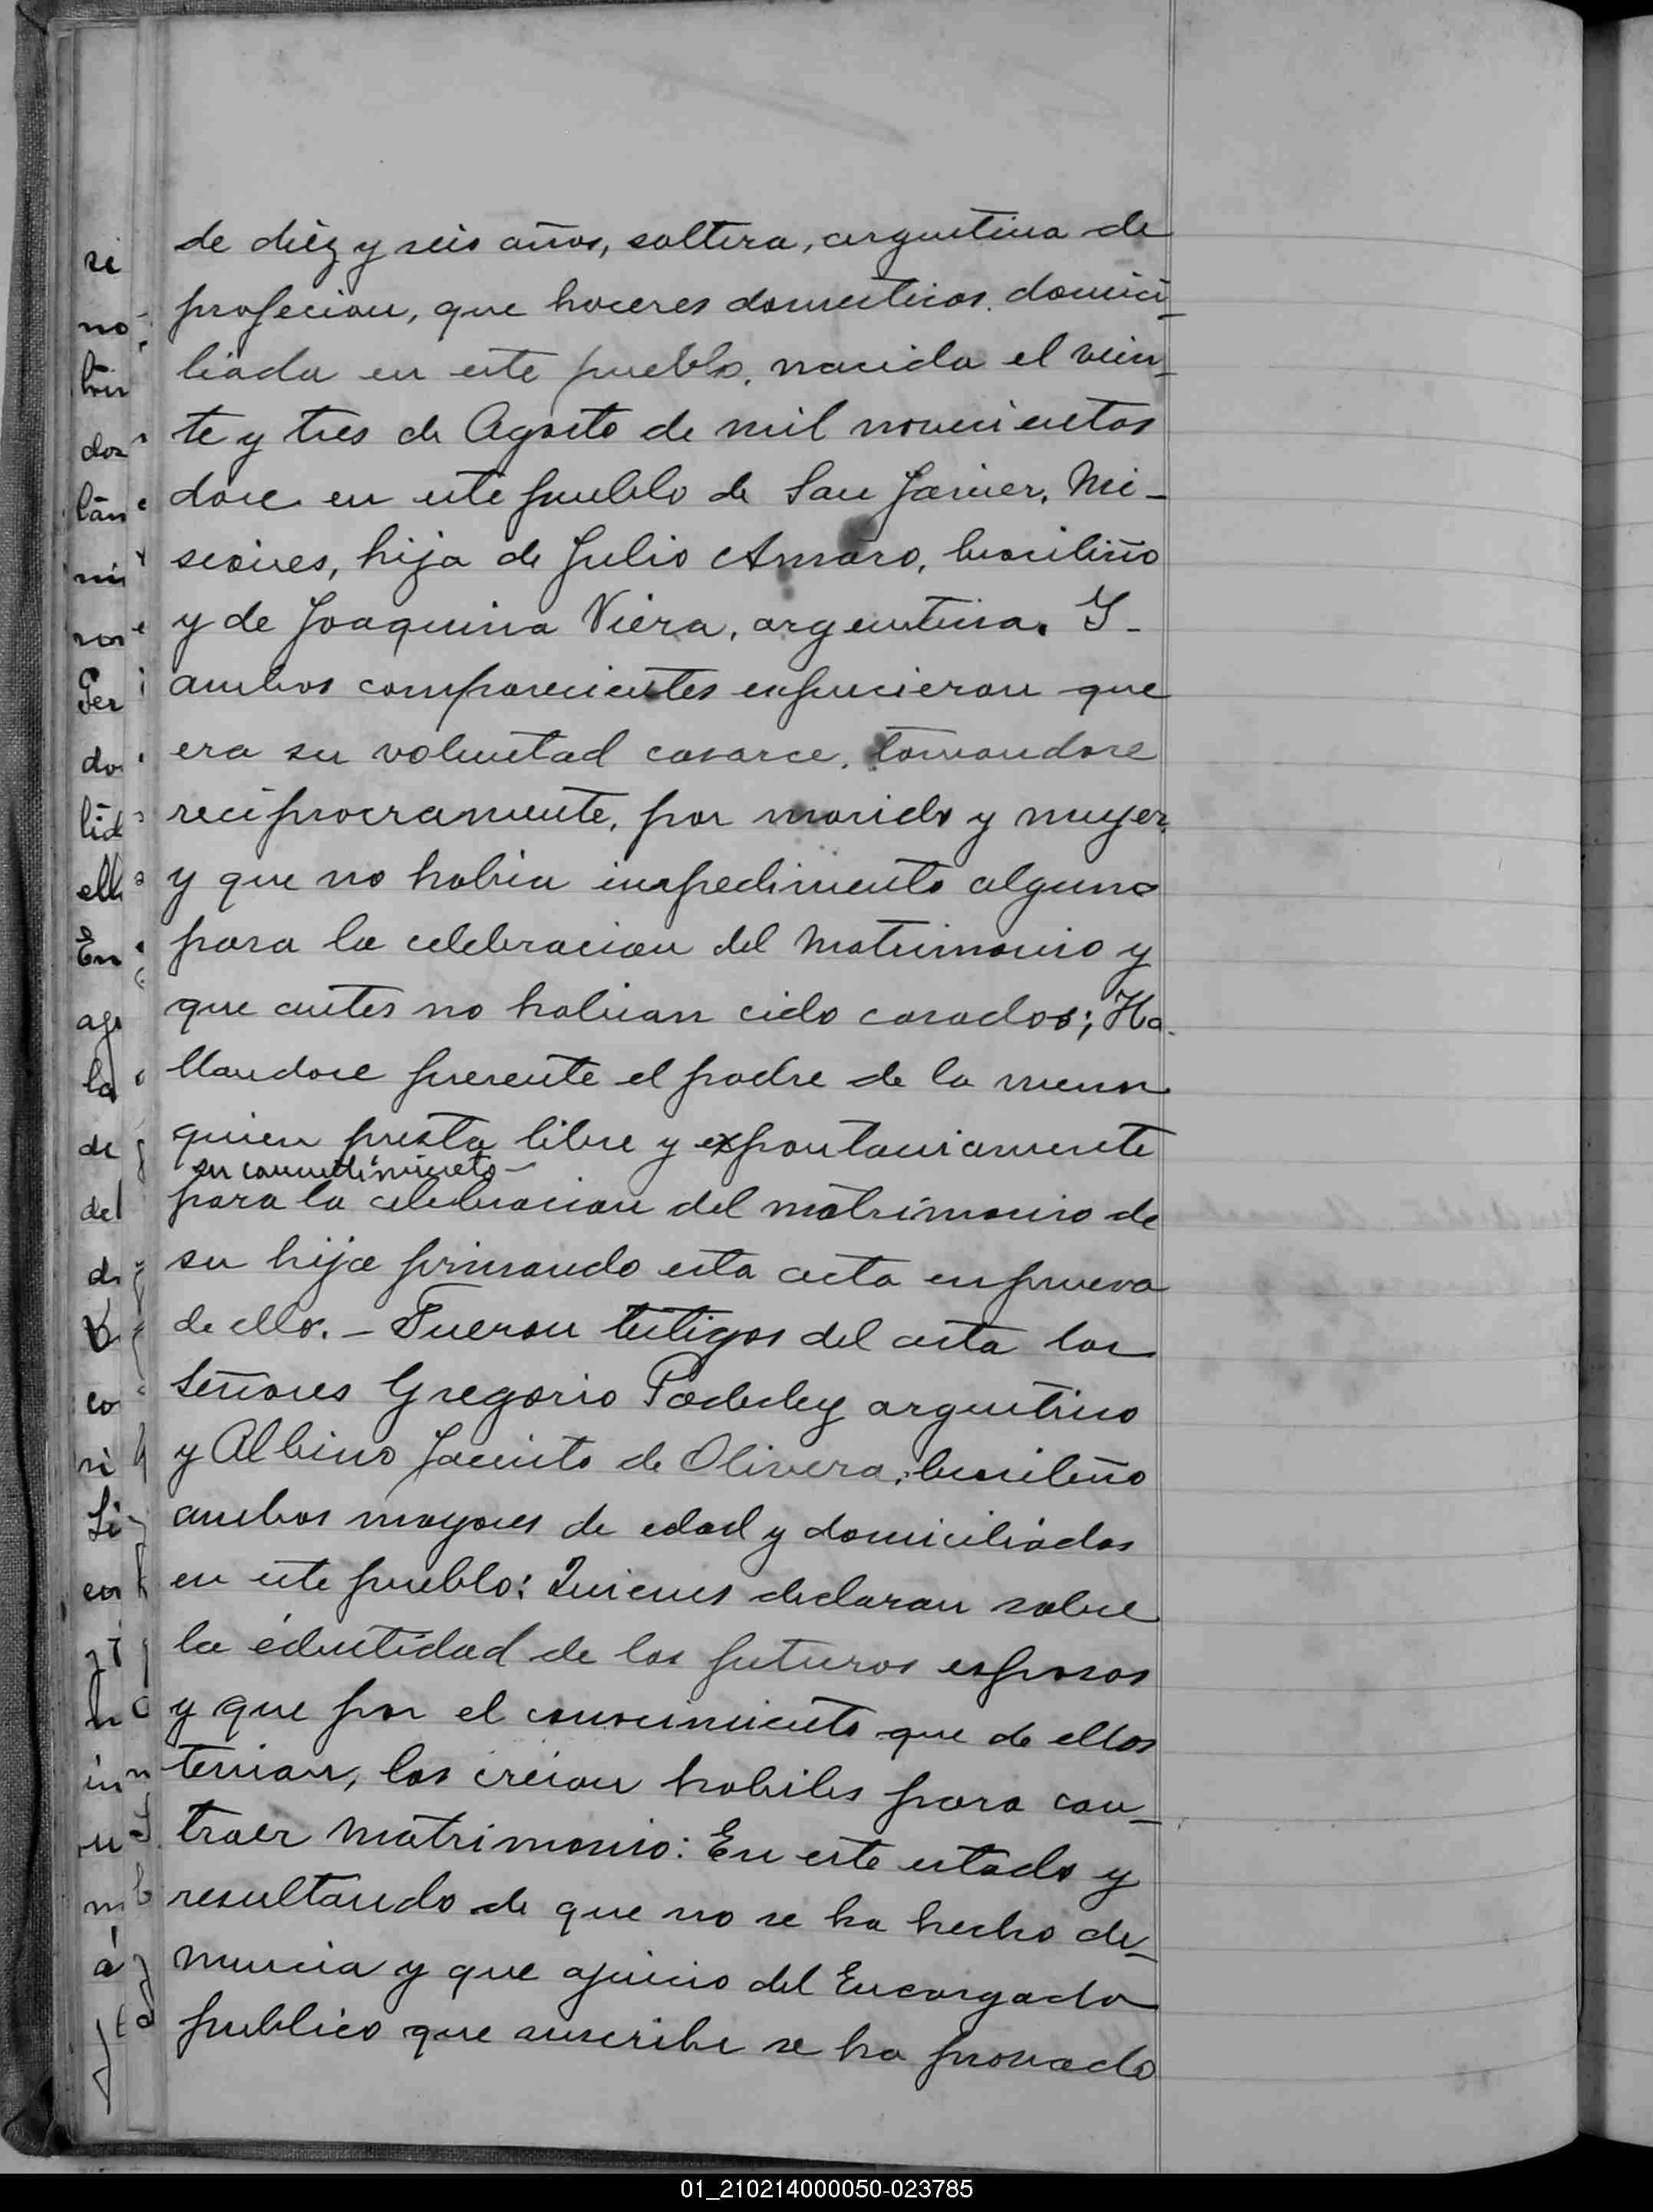 de diez y seis años, soltera, argentina de
profecion, que haceres domesticos. domici_
liada en este pueblo, nacida el vein_
te y tres de Agosto de mil novecientos
doce en este pueblo de San Javier, Mi-
siones, hija de Julio Amaro, brasiliño
y de Joaquina Viera, argentina. Y-
ambos comparecientes expucieron que
era su voluntad casarce, tomandose
reciprocramente, por marido y muyer,
y que no habia impedimento alguno
para la celebracion del Matrimonio y
que antes no habian cido casados; Ha-
llandose presente el padre de la menor
quien presta libre y expontaniamente
su consentimineto-
para la celebracion del matrimonio de
su hija firmando esta acta en prueva
de ello. - Fueron testigos del acta los
Señores Gregorio argentino
y Albino Jacinto de Olivera, brasileño
ambos mayores de edad y domiciliados
en este pueblo: Quienes declaran sobre
la edentidad de los futuros esposos
y que por el conocimiento que de ellos
tenian, los creian habiles para con_
traer Matrimonio: En este estado y
resultando de que no se ha hecho de_
nuncia y que ajuicio del Encargado
publico que suscribe se ha provado
si
no
dos
mi
Ger
do
ell
En
la
de
del
co
si
en
á
01_210214000050-023785